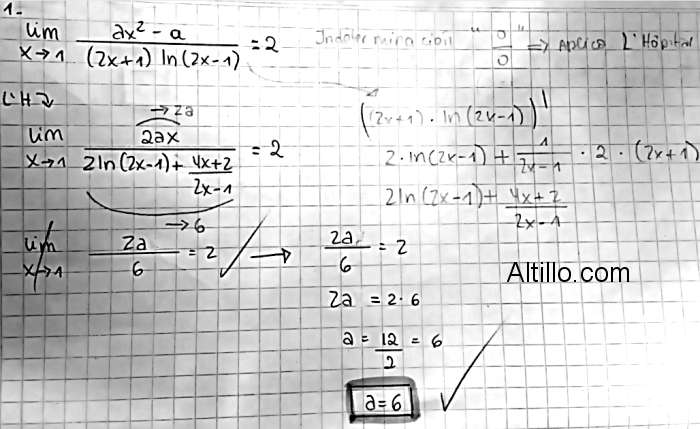 1.-
lim x→1 (ax² - a) / ((2x+1) ln(2x-1)) = 2 Indeterminación "0/0" ⇒ Aplico L'Hôpital
L'H
→ 2a
lim x→1 2ax / (2 ln(2x-1) + (4x+2)/(2x-1)) = 2
→ 6
((2x+1) · ln(2x-1))'
2 · ln(2x-1) + 1/(2x-1) · 2 · (2x+1)
2 ln(2x-1) + (4x+2)/(2x-1)
lim x→1 2a/6 = 2 ✓ → 2a/6 = 2
2a = 2·6
a = 12/2 = 6
a = 6 ✓
Altillo.com